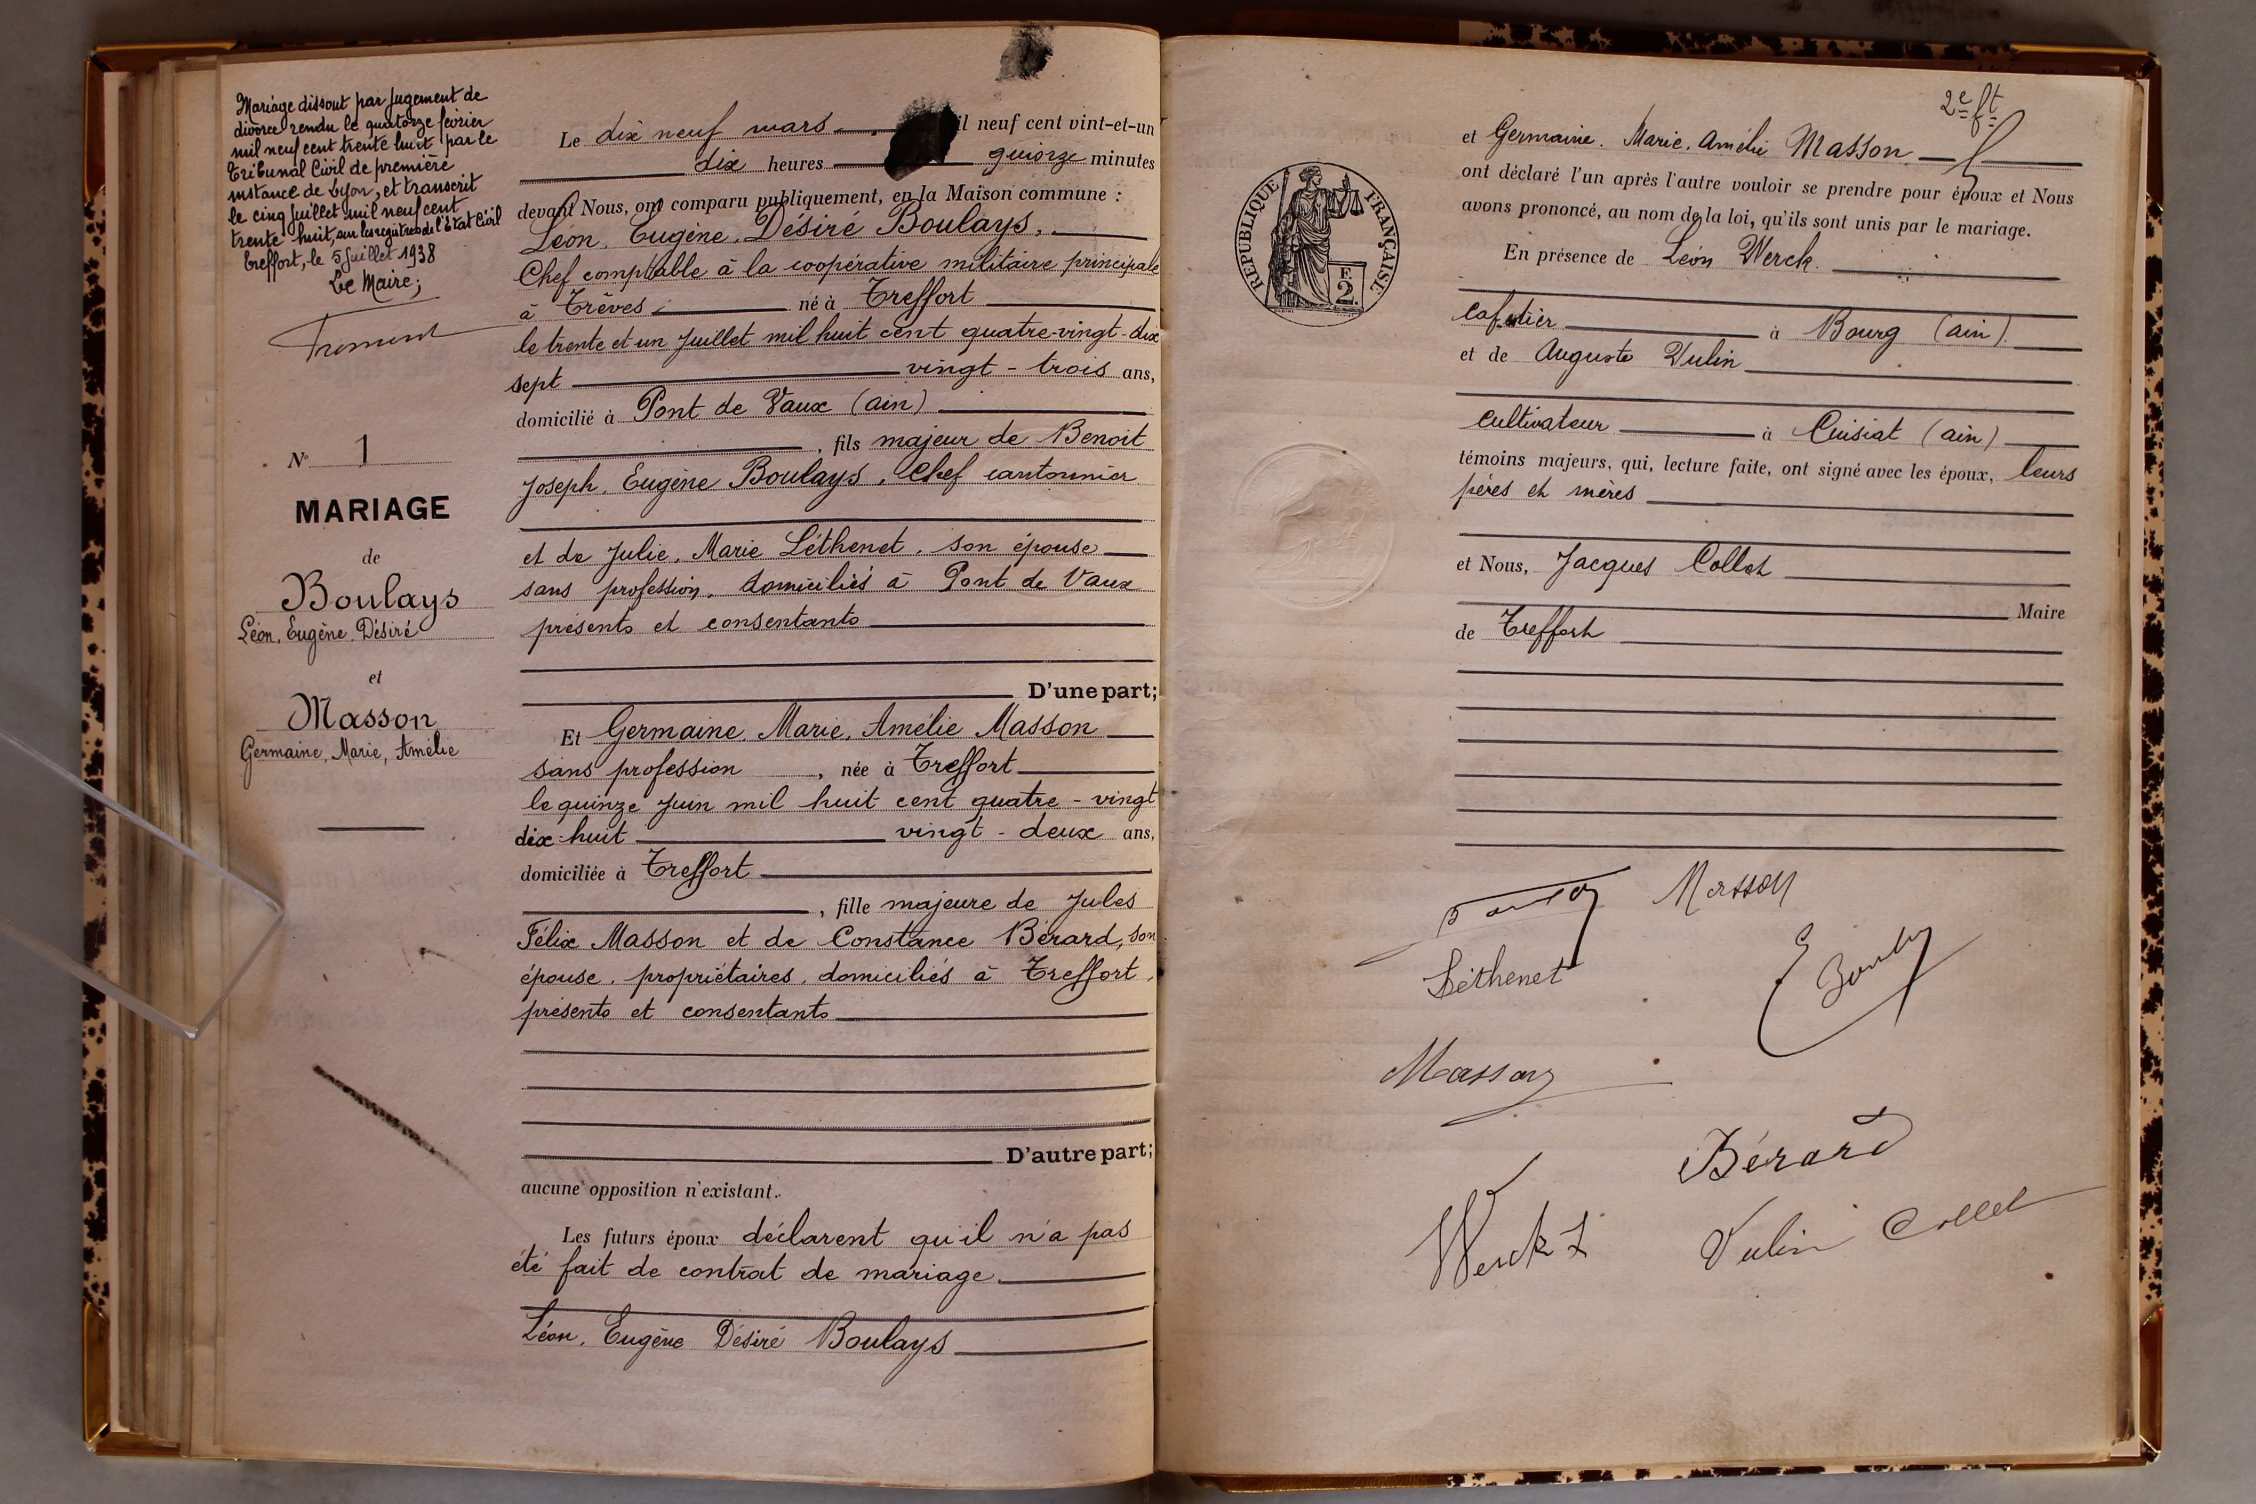 Mariage dissout par Jugement de
divorce rendu le quatorze février
mil neuf cent trente huit par le
Tribunal Civil de première
instance de Lyon, et transcrit
le cinq Juillet mil neuf cent
trente huit, sur les registres de l'État Civil
Treffort, le 5 Juillet 1938
Le Maire;
N° 1
MARIAGE
de
Boulays
Léon, Eugène, Désiré
et
Masson
Germaine, Marie, Amélie
Le dix neuf mars il neuf cent vint-et-un
dix heures quiorze minutes
devant Nous, ont comparu publiquement, en la Maison commune :
Léon, Eugène, Désiré Boulays,
Chef comptable à la coopérative militaire principale
à Trêves né à Treffort
le trente et un Juillet mil huit cent quatre-vingt-dix
sept vingt-trois ans,
domicilié à Pont de Vaux (ain)
, fils majeur de Benoit
Joseph, Eugène Boulays, Chef cantonnier
et de Julie, Marie Léthenet, son épouse
sans profession, domiciliés à Pont de Vaux
présents et consentants
D'une part;
Et Germaine, Marie, Amélie Masson
sans profession, née à Treffort
le quinze Juin mil huit cent quatre-vingt
dix-huit vingt-deux ans,
domiciliée à Treffort
, fille majeure de Jules
Félix Masson et de Constance Bérard, son
épouse, propriétaires, domiciliés à Treffort,
présents et consentants
D'autre part;
aucune opposition n'existant.
Les futurs époux déclarent qu'il n'a pas
été fait de contrat de mariage.
Léon, Eugène Désiré Boulays
2e ft
et Germaine, Marie, Amélie Masson
ont déclaré l'un après l'autre vouloir se prendre pour époux et Nous
avons prononcé, au nom de la loi, qu'ils sont unis par le mariage.
RÉPUBLIQUE FRANÇAISE
F.
2.
En présence de Léon Werck
cafetier à Bourg (ain)
et de Auguste Vulin
cultivateur à Cuisiat (ain)
témoins majeurs, qui, lecture faite, ont signé avec les époux, leurs
pères et mères
et Nous, Jacques Collet
Maire
de Treffort
Masson
Léthenet
Masson
Bérard
Werck L
Vulin Collet